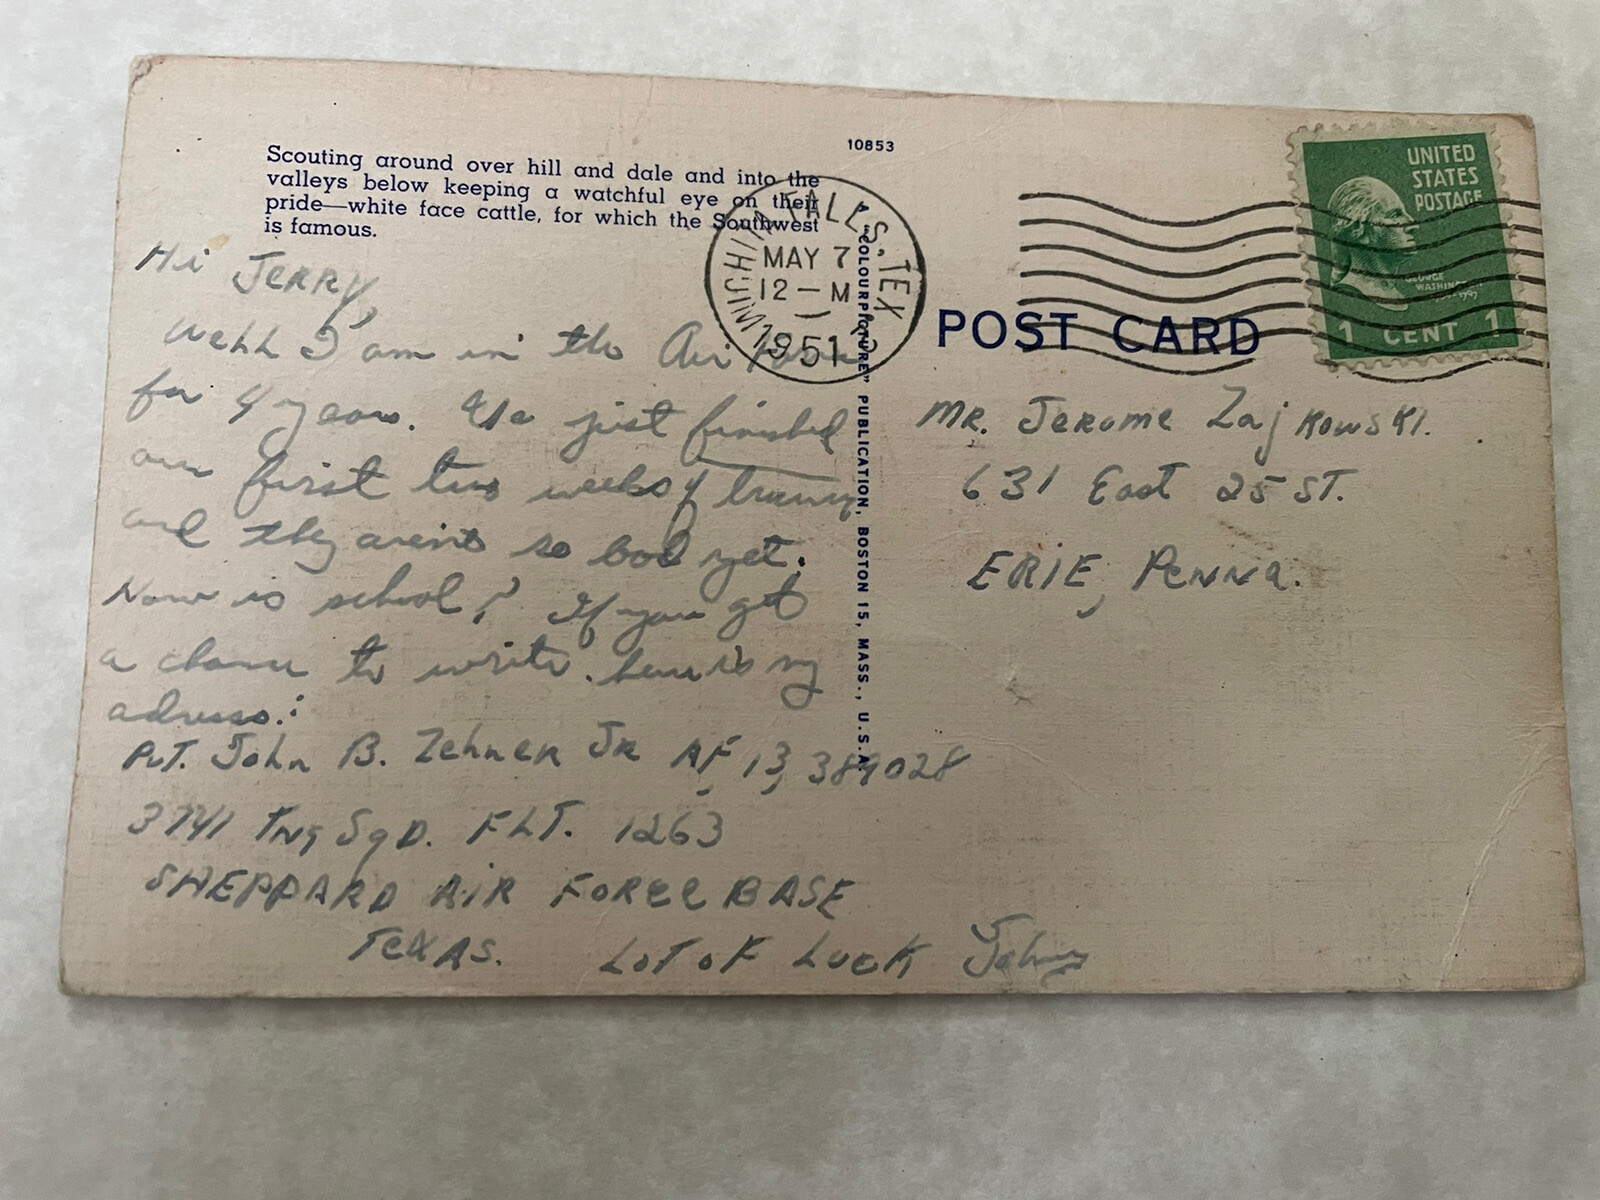 10853
Scouting around over hill and dale and into the
valleys below keeping a watchful eye on their
pride—white face cattle, for which the Southwest
is famous.
WICHITA FALLS. TEX
MAY 7
12 - M
1951
UNITED
STATES
POSTAGE
GEORGE
WASHINGTON
1 CENT 1
POST CARD
"COLOURPICTURE" PUBLICATION, BOSTON 15, MASS., U.S.A.
Hi Jerry,
Well I am in the Air Force
for 4 years. We just finished
our first two weeks of training
and they arent so bad yet.
How is school? If you get
a chance to write. here is my
adress.:
Pvt. John B. Zehner Jr AF 13,389028
3741 Tng Sqd. FLT. 1263
SHEPPARD AIR FORCE BASE
TEXAS.
LOT OF LUCK Johny
Mr. Jerome Zajkowski.
631 East 25 ST.
ERIE, Penna.